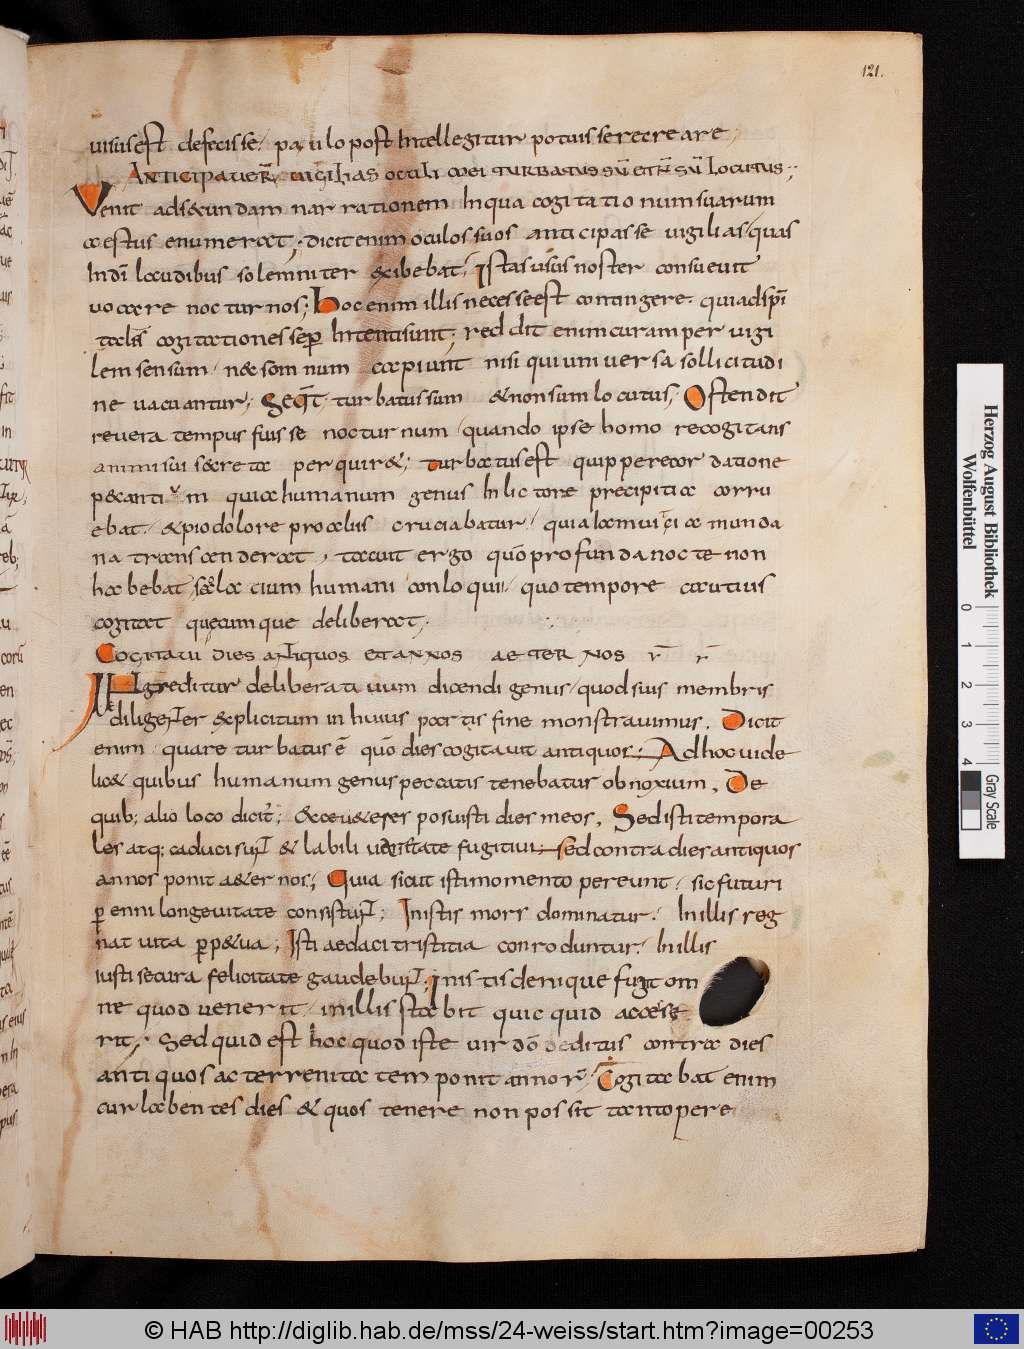 121.
uisus est defecisse, paulo post intellegitur potuisse recreare,
ANTICIPAUERT uigilias oculi mei TURBATUS SŪ ET N̄ SŪ LOCUTUS;
Venit ad secundam narrationem In qua cogitationum suarum
aestus enumerat; dicit enim oculos suos anticipasse uigilias quas
In dī laudibus solemniter exibebat, Istas usus noster consueuit
uocare nocturnos; hoc enim illis necesse est contingere. qui ad
cogitationes sep Intenti sunt; reddit enim curam peruigi
lem sensum, nec somnum capiunt nisi qui uniuersa sollicitudi
ne uacuantur; Seqt turbatus sum & non sum locutus; Ostendit
reuera tempus fuisse nocturnum, quando ipse homo recogitans
animi sui secreta perquiret; turbatus est quippe recordatione
peccanti m quia humanum genus In lictore precipitia corru
ebat, & pio dolore prophetus cruciabatur, quia lacmui munda
na transcenderat, tacuit ergo quō profunda nocte non
habebat, solacium humani conloquii, quo tempore cautius
cogitat quęcumque deliberat;
COGITAUI DIES ANTIQUOS ET ANNOS AETERNOS
Ingreditur deliberatiuum dicendi genus, quod suis membris
diligenter explicitum in huius partis fine monstrauimus. Dicit
enim quare turbatus ē quō dies cogitauit antiquos; Ad hoc uide
licet quibus humanum genus peccatis tenebatur obnoxium, De
quib; alio loco dicit; ecce ueteres posuisti dies meos, Sed isti tempora
les atq; caduci sunt & labili uelocitate fugitiui; sed contra dies antiquos
annos ponit aeternos; Quia sicut isti momento pereunt, sic futuri
perenni longeuitate consistunt; In istis mors dominatur. In illis reg
nat uita perpetua; Isti aedaci tristitia conroduntur. In illis
iusti secura felicitate gaudebunt; In istis denique fugit om
ne quod uenerit, in illis stabit quicquid accesse
rit; Sed quid est hoc quod iste uir dō deditus contra dies
antiquos ac terrenita tem ponit annor; Cogitabat enim
cur labentes dies & quos tenere non possit tantopere
Herzog August Bibliothek
Wolfenbüttel
0 1 2 3 4
Gray Scale
© HAB http://diglib.hab.de/mss/24-weiss/start.htm?image=00253